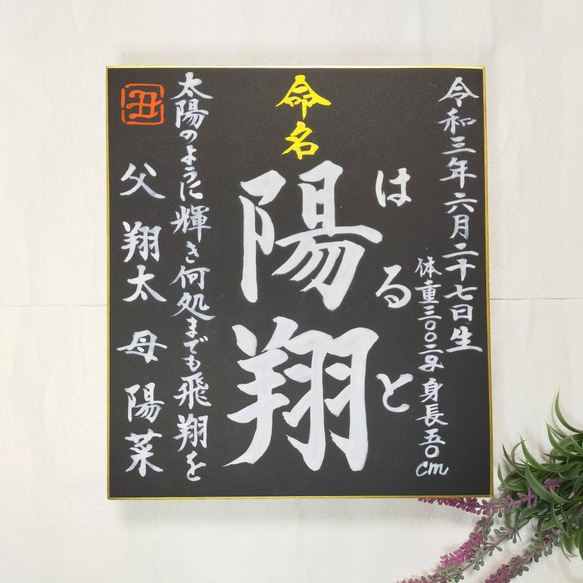 令和三年六月二十七日生
体重三〇二二g 身長五〇cm
はると
命名
陽翔
太陽のように輝き何処までも飛翔を
父 翔太 母 陽菜
丑